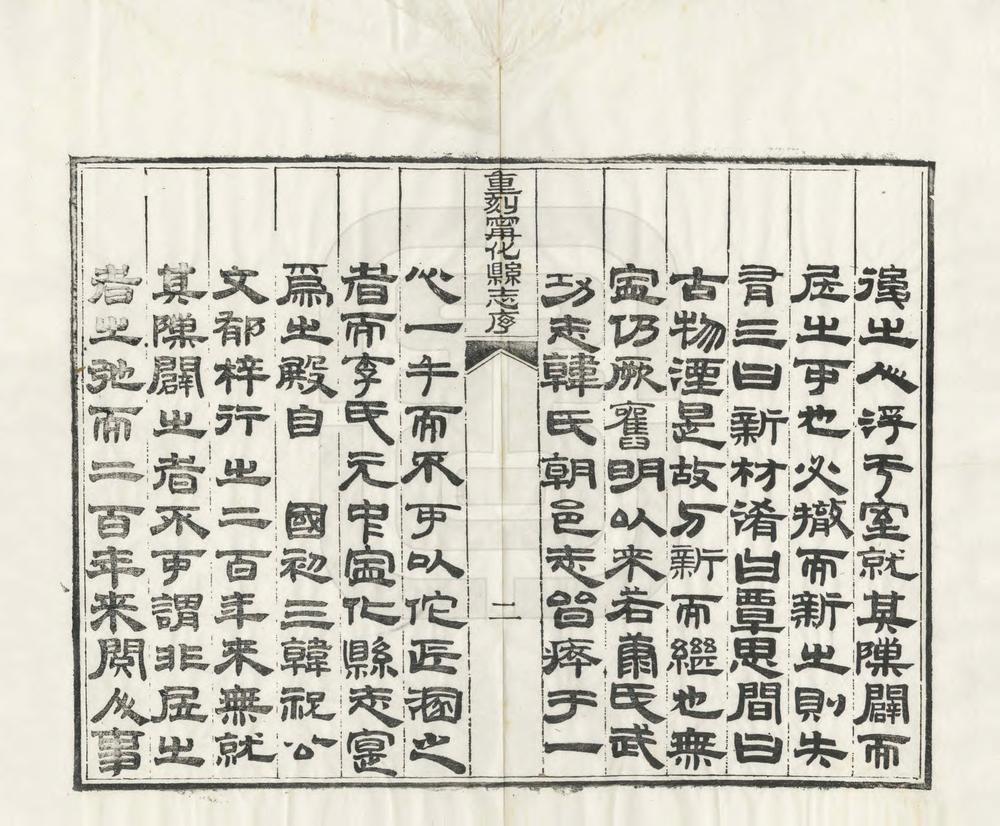 後之心浮于室就其隟闢而
居之可也必撤而新之則失
有三曰新材淆曰覃思間曰
古物湮是故与新而繼也無
寍仍厥舊明以来若蕭氏武
功志韓氏朝邑志皆瘁于一
重刻甯化縣志序 二
心一手而不可以佗匠溷之
者而李氏元中寍化縣志寔
爲之殿自 國初三韓祝公
文郁梓行之二百年来無就
其隟闢之者不可謂非居之
者之弛而二百年来閱人事